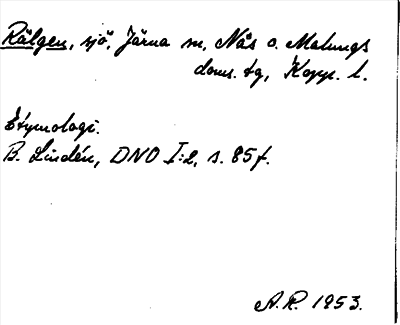 Rälgen, sjö, Järna sn, Nås o. Malungs
doms. tg, Kopp. l.
Etymologi.
B. Lindén, DNO I:2, s. 85 f.
A.R. 1953.